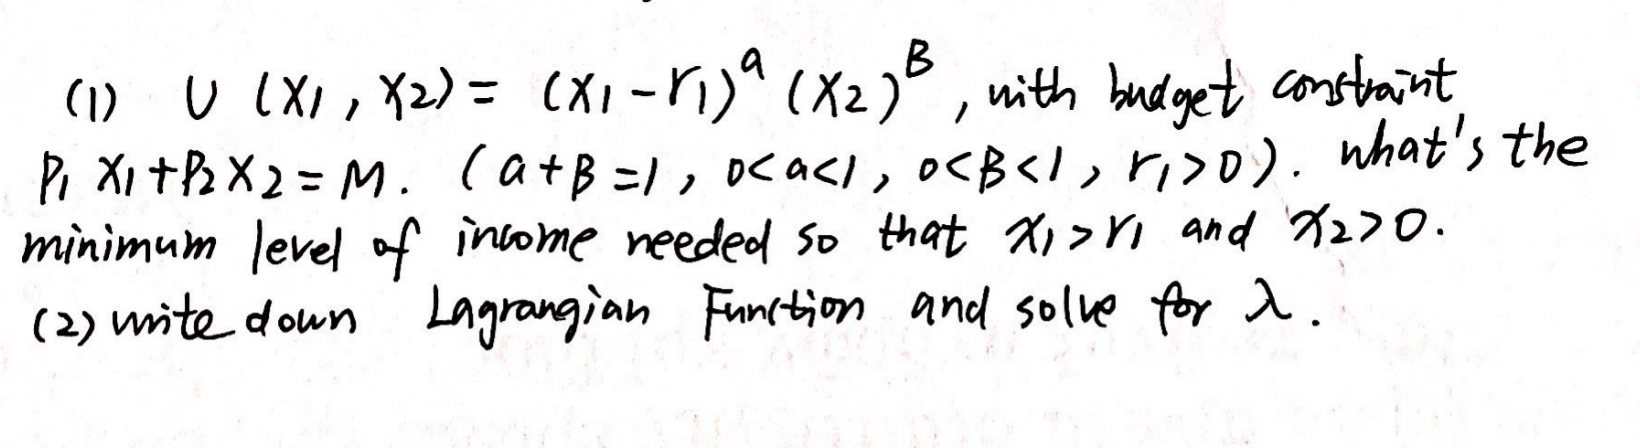 (1) U (X1, X2) = (X1 - r1)^a (X2)^B, with budget constraint
P1 X1 + P2 X2 = M. (a + B = 1, 0<a<1, 0<B<1, r1>0). what's the
minimum level of income needed so that X1>r1 and X2>0.
(2) write down Lagrangian Function and solve for λ.